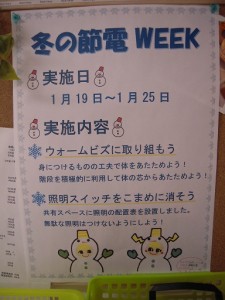 冬の節電 WEEK
実施日
1月19日～1月25日
実施内容
ウォームビズに取り組もう
身につけるものの工夫で体をあたためよう!
階段を積極的に利用して体の芯からあたためよう!
照明スイッチをこまめに消そう
共有スペースに照明の配置表を設置しました。
無駄な照明はつけないようにしよう!